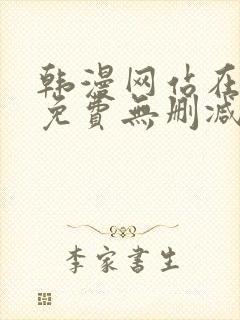 韩漫网站在
免費無删减
李家書生